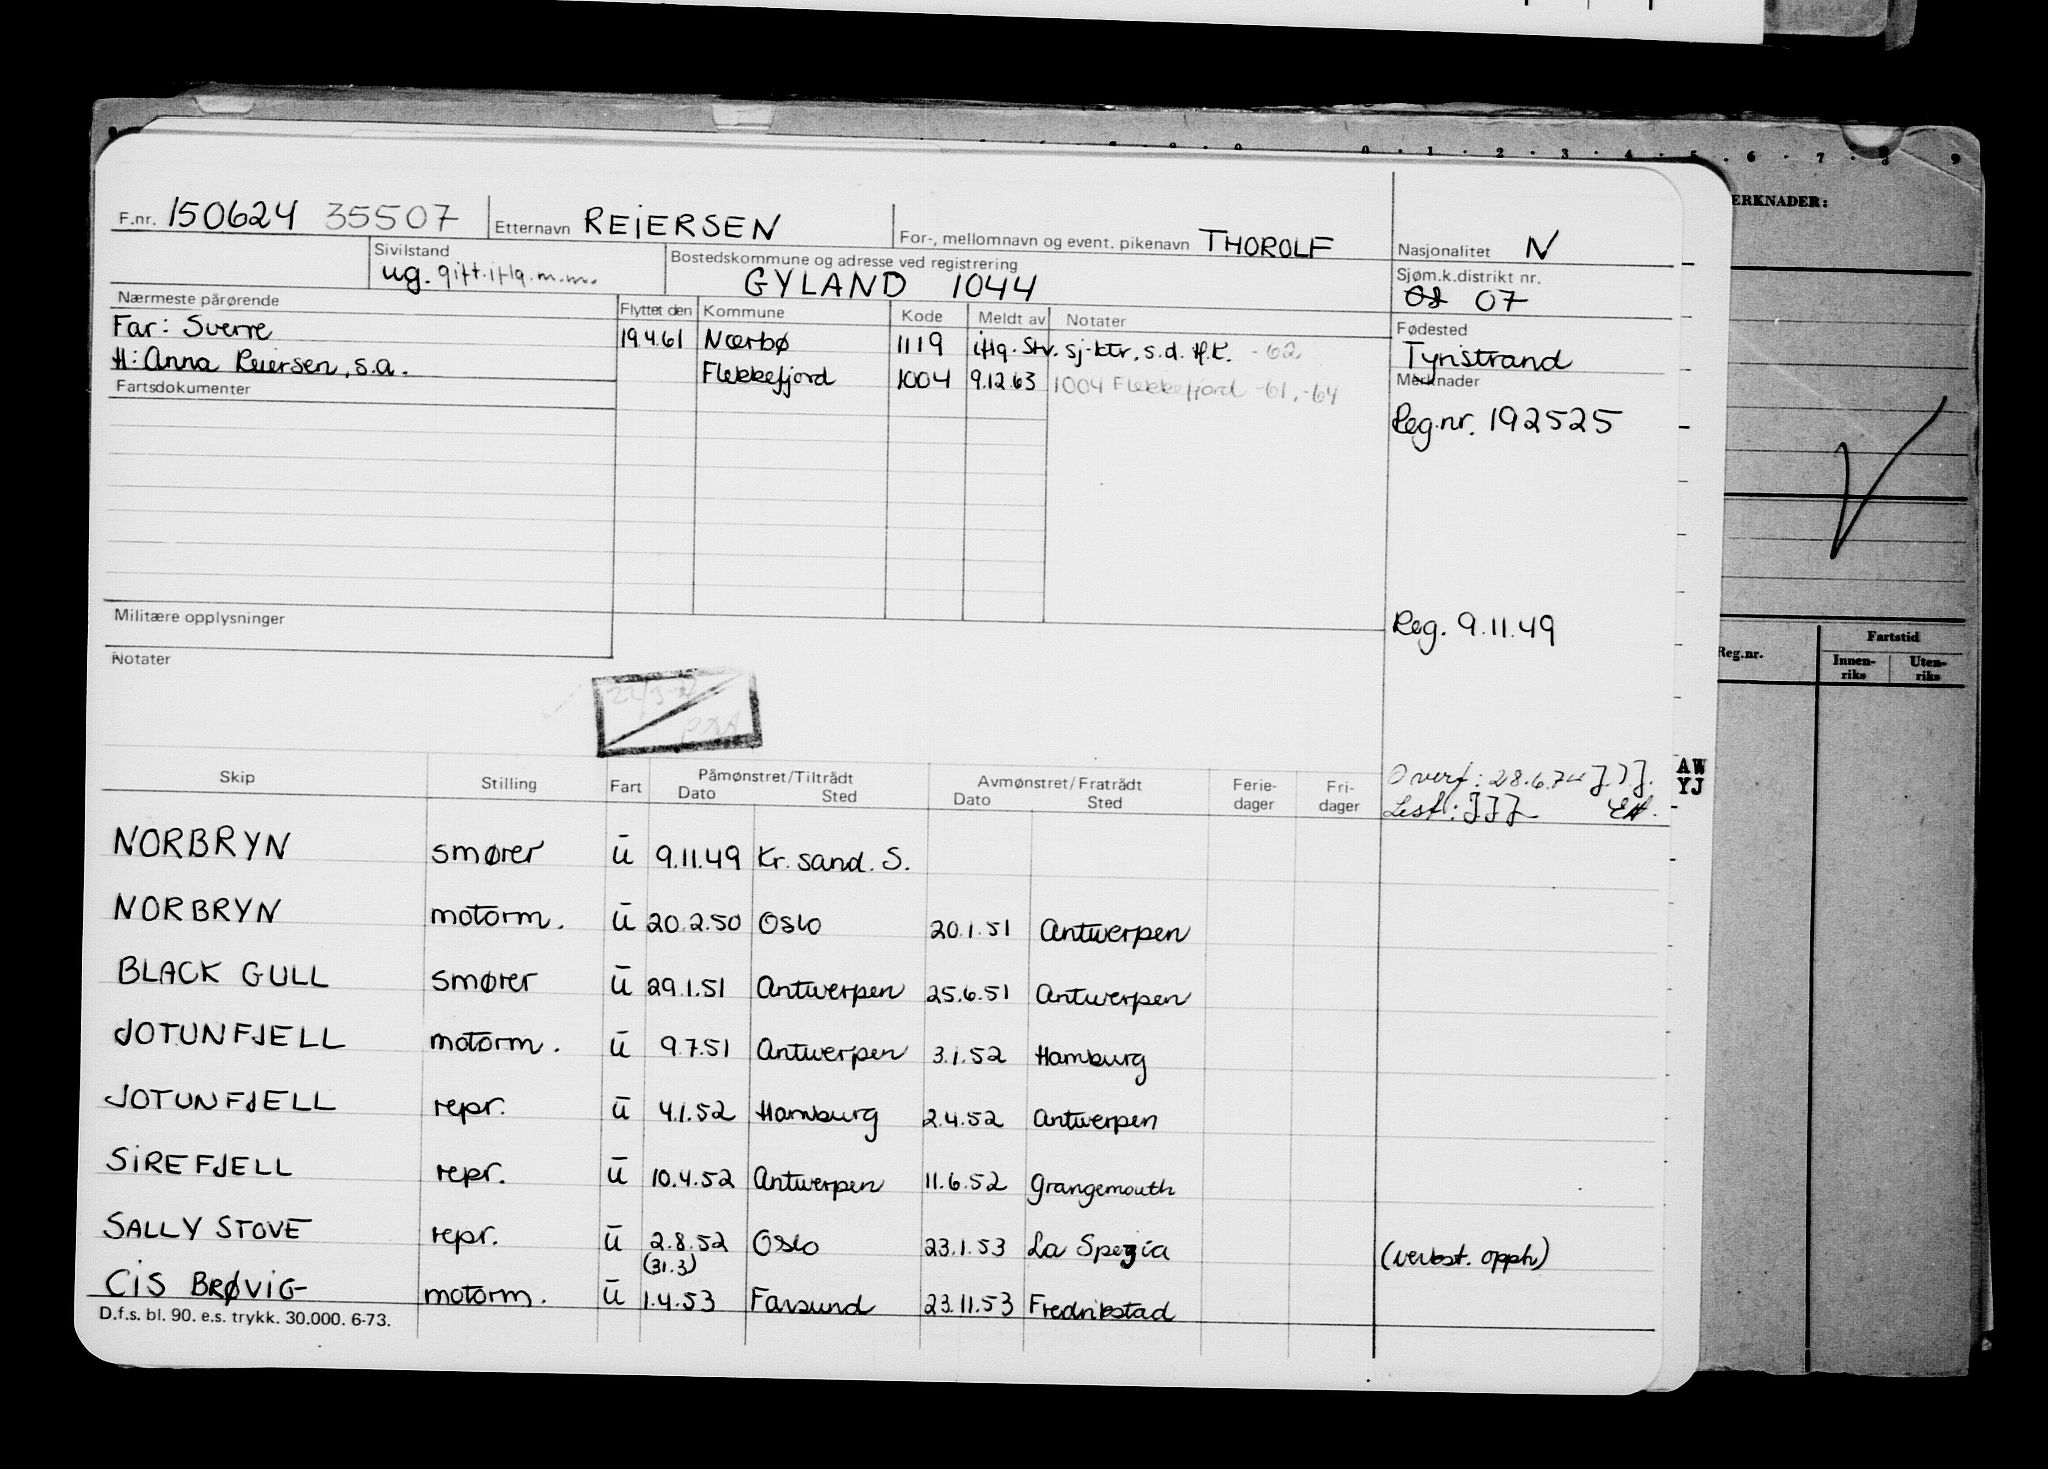 0 · 1 · 2 · 3 · 4 · 5 · 6 · 7 · 8 · 9
ERKNADER:
F.nr. 150624 35507 Etternavn REIERSEN For-, mellomnavn og event. pikenavn THOROLF Nasjonalitet N
Sivilstand ug. gift.iflg.m.m. Bostedskommune og adresse ved registrering GYLAND 1044 Sjøm.k.distrikt nr. 07
Nærmeste pårørende Flyttet den Kommune Kode Meldt av Notater Fødested
Far: Sverre 19.4.61 Nærbø 1119 iflg. Str. sj-ktr. s.d. H.K. -62 Tyristrand
H: Anna Reiersen, s.a. Flekkefjord 1004 9.12.63 1004 Flekkefjord -61, -64 Merknader
Fartsdokumenter
Reg.nr. 192525
Militære opplysninger Reg. 9.11.49
Notater
Reg.nr. Fartstid
Innen-riks Uten-riks
Skip Stilling Fart Påmønstret/Tiltrådt Avmønstret/Fratrådt Ferie-dager Fri-dager Overf: 28.6.74 J.J.J.
Dato Sted Dato Sted Lest: JJJ EH.
AW
YJ
NORBRYN smører u 9.11.49 Kr. sand. S.
NORBRYN motorm. u 20.2.50 Oslo 20.1.51 Antwerpen
BLACK GULL smører u 29.1.51 Antwerpen 25.6.51 Antwerpen
JOTUNFJELL motorm. u 9.7.51 Antwerpen 3.1.52 Hamburg
JOTUNFJELL repr. u 4.1.52 Hamburg 2.4.52 Antwerpen
SIREFJELL repr. u 10.4.52 Antwerpen 11.6.52 Grangemouth
SALLY STOVE repr. u 2.8.52 Oslo 23.1.53 La Spezia (verkst. opph)
(31.3)
CIS BRØVIG motorm. u 1.4.53 Farsund 23.11.53 Fredrikstad
D.f.s. bl. 90. e.s. trykk. 30.000. 6-73.